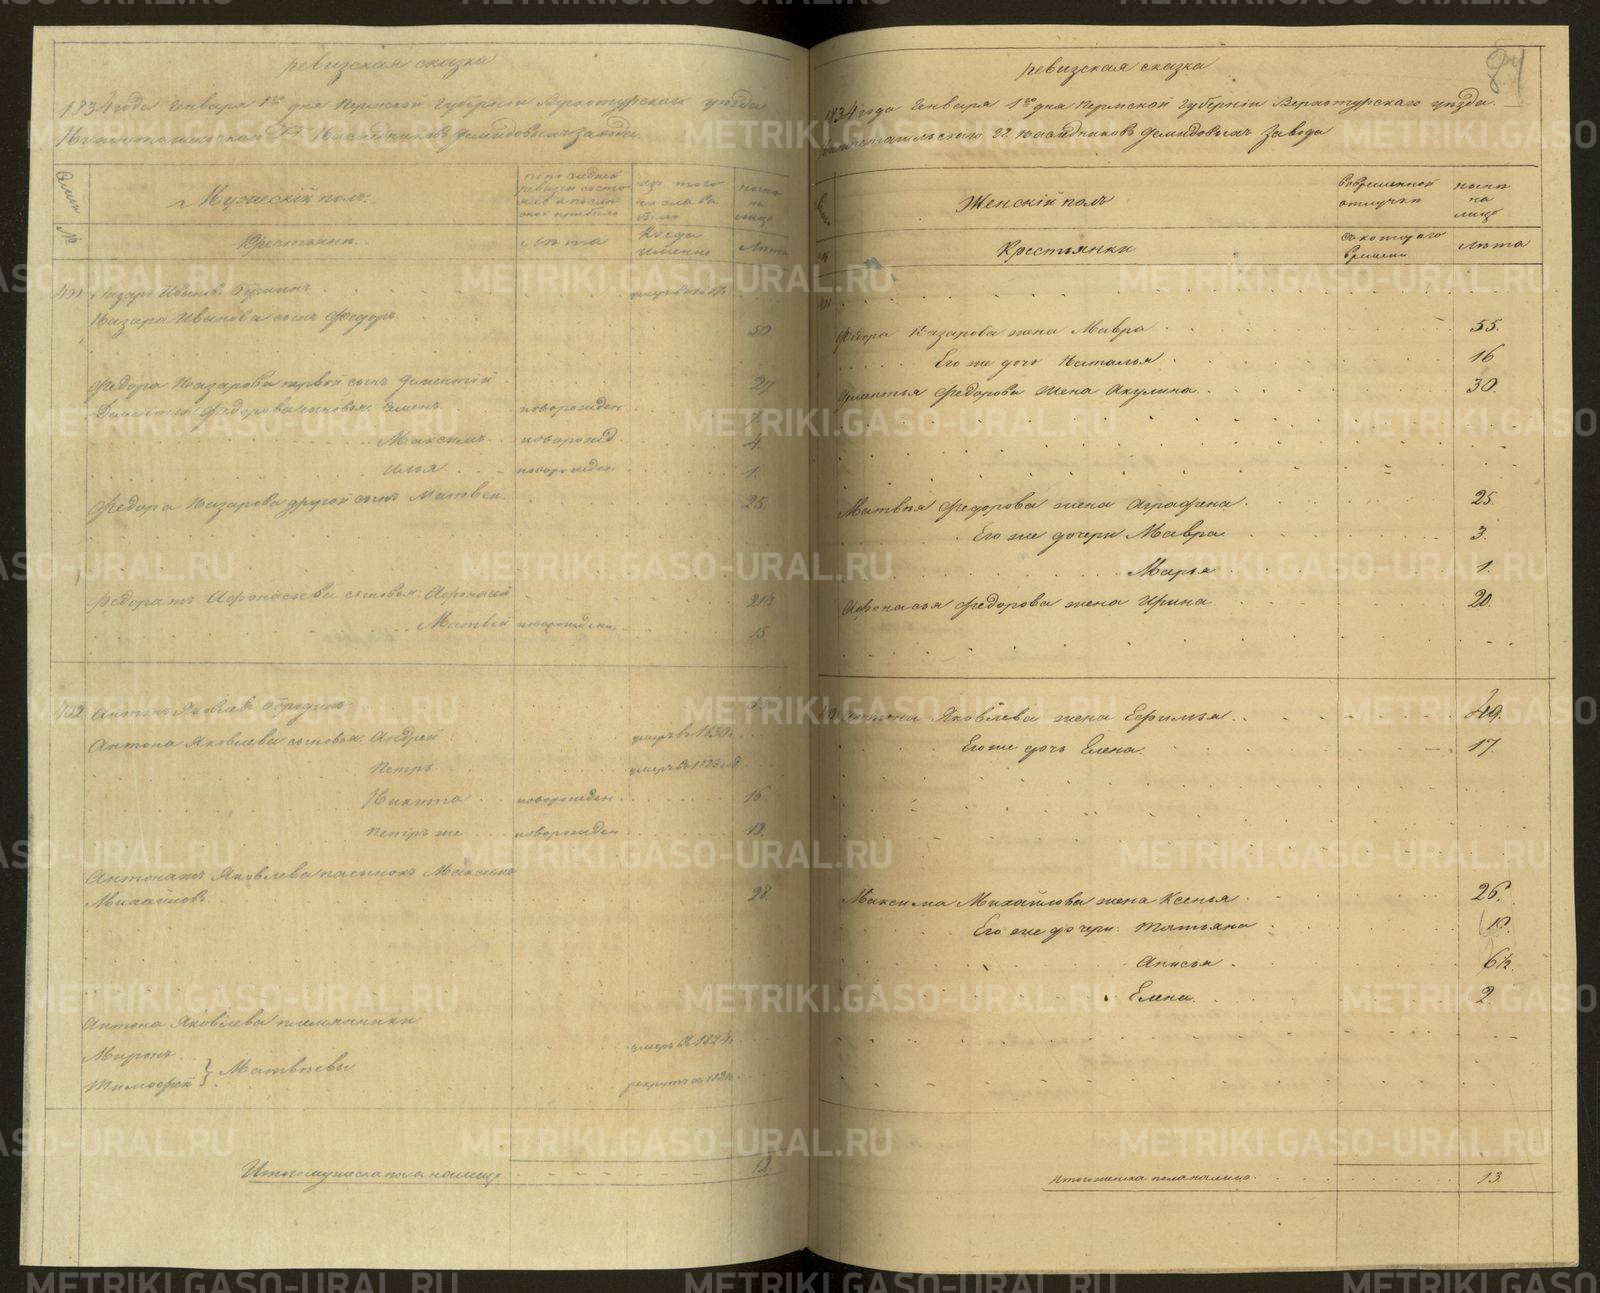 ревизская сказка
1834 года Генваря 1го дня Пермской Губернiи Верхотурскаго уѣзда
Нижнетагильскаго Гг Наслѣдниковъ Демидовыхъ завода.
Семьи №
Мужескiй полъ.
По последней ревизiи состояло и после оной прибыло
Изъ того числа выбыло
Нынѣ на лицо
Крестьяне.
Лѣта
Когда именно
Лѣта
Назаръ Ивановъ
умеръ въ
Назара Иванова сынъ Федоръ 50
Федора Назарова первой сынъ Дементiй
Дементья Федорова сыновья: Семенъ новорожден
Максимъ новорожд. 4.
Илья новорожден 1.
Федора Назарова другой сынъ Матвей 25.
Федора жъ Афонасьева сыновья Афонасей
Матвей новорожден. 15.
Антонъ Яковлевъ
Антона Яковлева сыновья: Андрей умеръ въ 1830г.
Петръ умеръ въ
Никита новорожден 16
Петръ же новорожден
Антона жъ Яковлева пасынокъ Максимъ
Михайловъ 28.
Антона Яковлева племянники
Миронъ умеръ въ
Тимофей } Матвѣевы рекрутъ въ
Итого мужеска пола на лицо 12
84
ревизская сказка
1834 года Генваря 1го дня Пермской Губернiи Верхотурскаго уѣзда.
Нижнетагильскаго Гг Наслѣдниковъ Демидовыхъ Завода
Женскiй полъ
Во временной отлучки
Нынѣ на лицо
Крестьянки
Съ котораго времени
Лѣта
Федора Назарова жена Мавра 55.
Его же дочь Наталья 16
Дементья Федорова жена Акулина 30
Матвѣя Федорова жена Аграфена. 25.
Его же дочери Мавра 3.
Марья 1.
Афонасья Федорова жена Ирина 20.
Антона Яковлева жена Ефимья 49.
Его же дочь Елена 17.
Максима Михайлова жена Ксенья 26.
Его же дочери: Татьяна
Анисья 6½.
Елена. 2
Итого женска пола на лицо. 13
METRIKI.GASO-URAL.RU